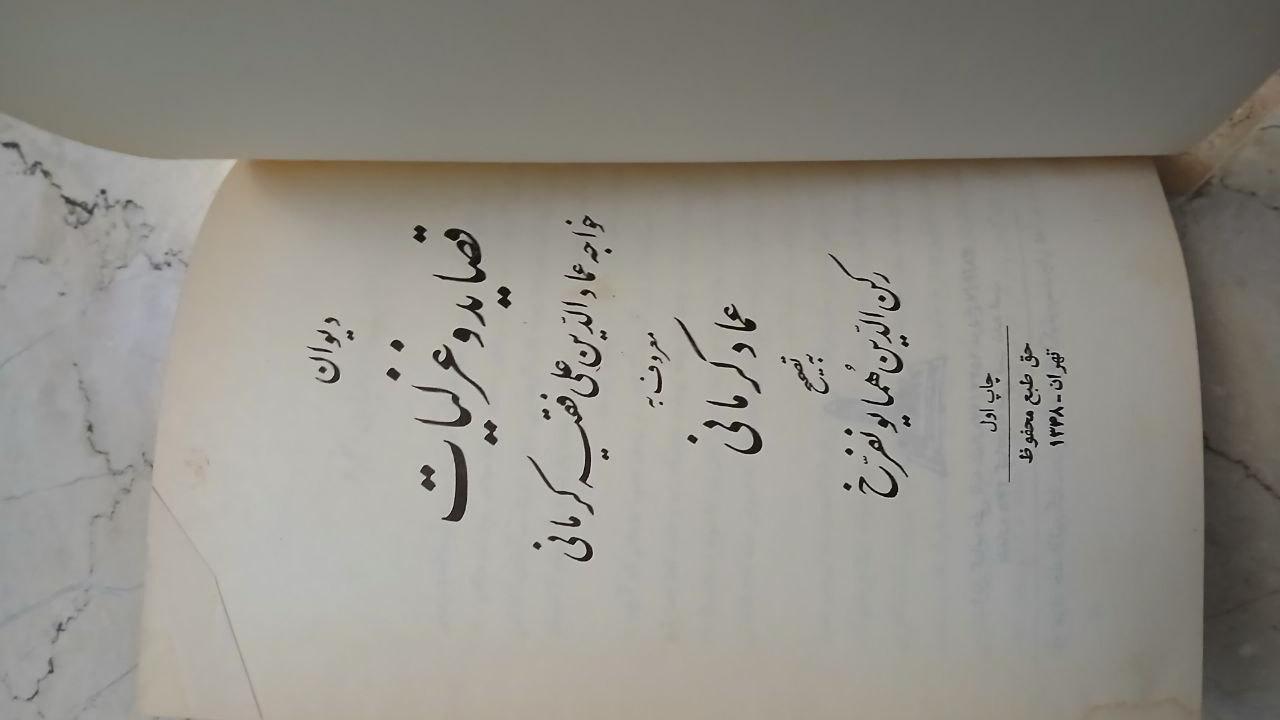 دیوان
قصاید و غزلیات
خواجه عماد الدّین علی فقیه کرمانی
معروف به
عماد کرمانی
به تصحیح
رکن الدّین هُمایونفرّخ
چاپ اول
حق طبع محفوظ
تهران - ۱۳۴۸